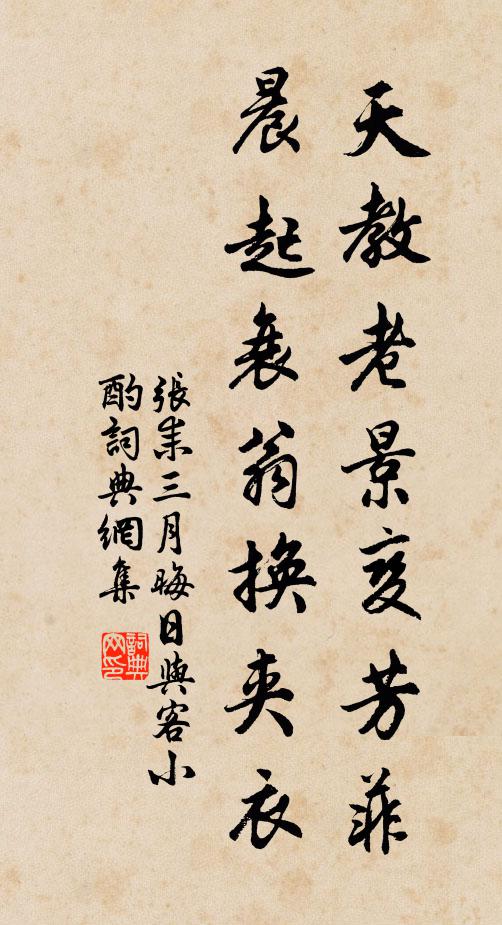 天教老景变芳菲
晨起衰翁換夹衣
張耒三月晦日與客小
酌詞典網集
詞典网印